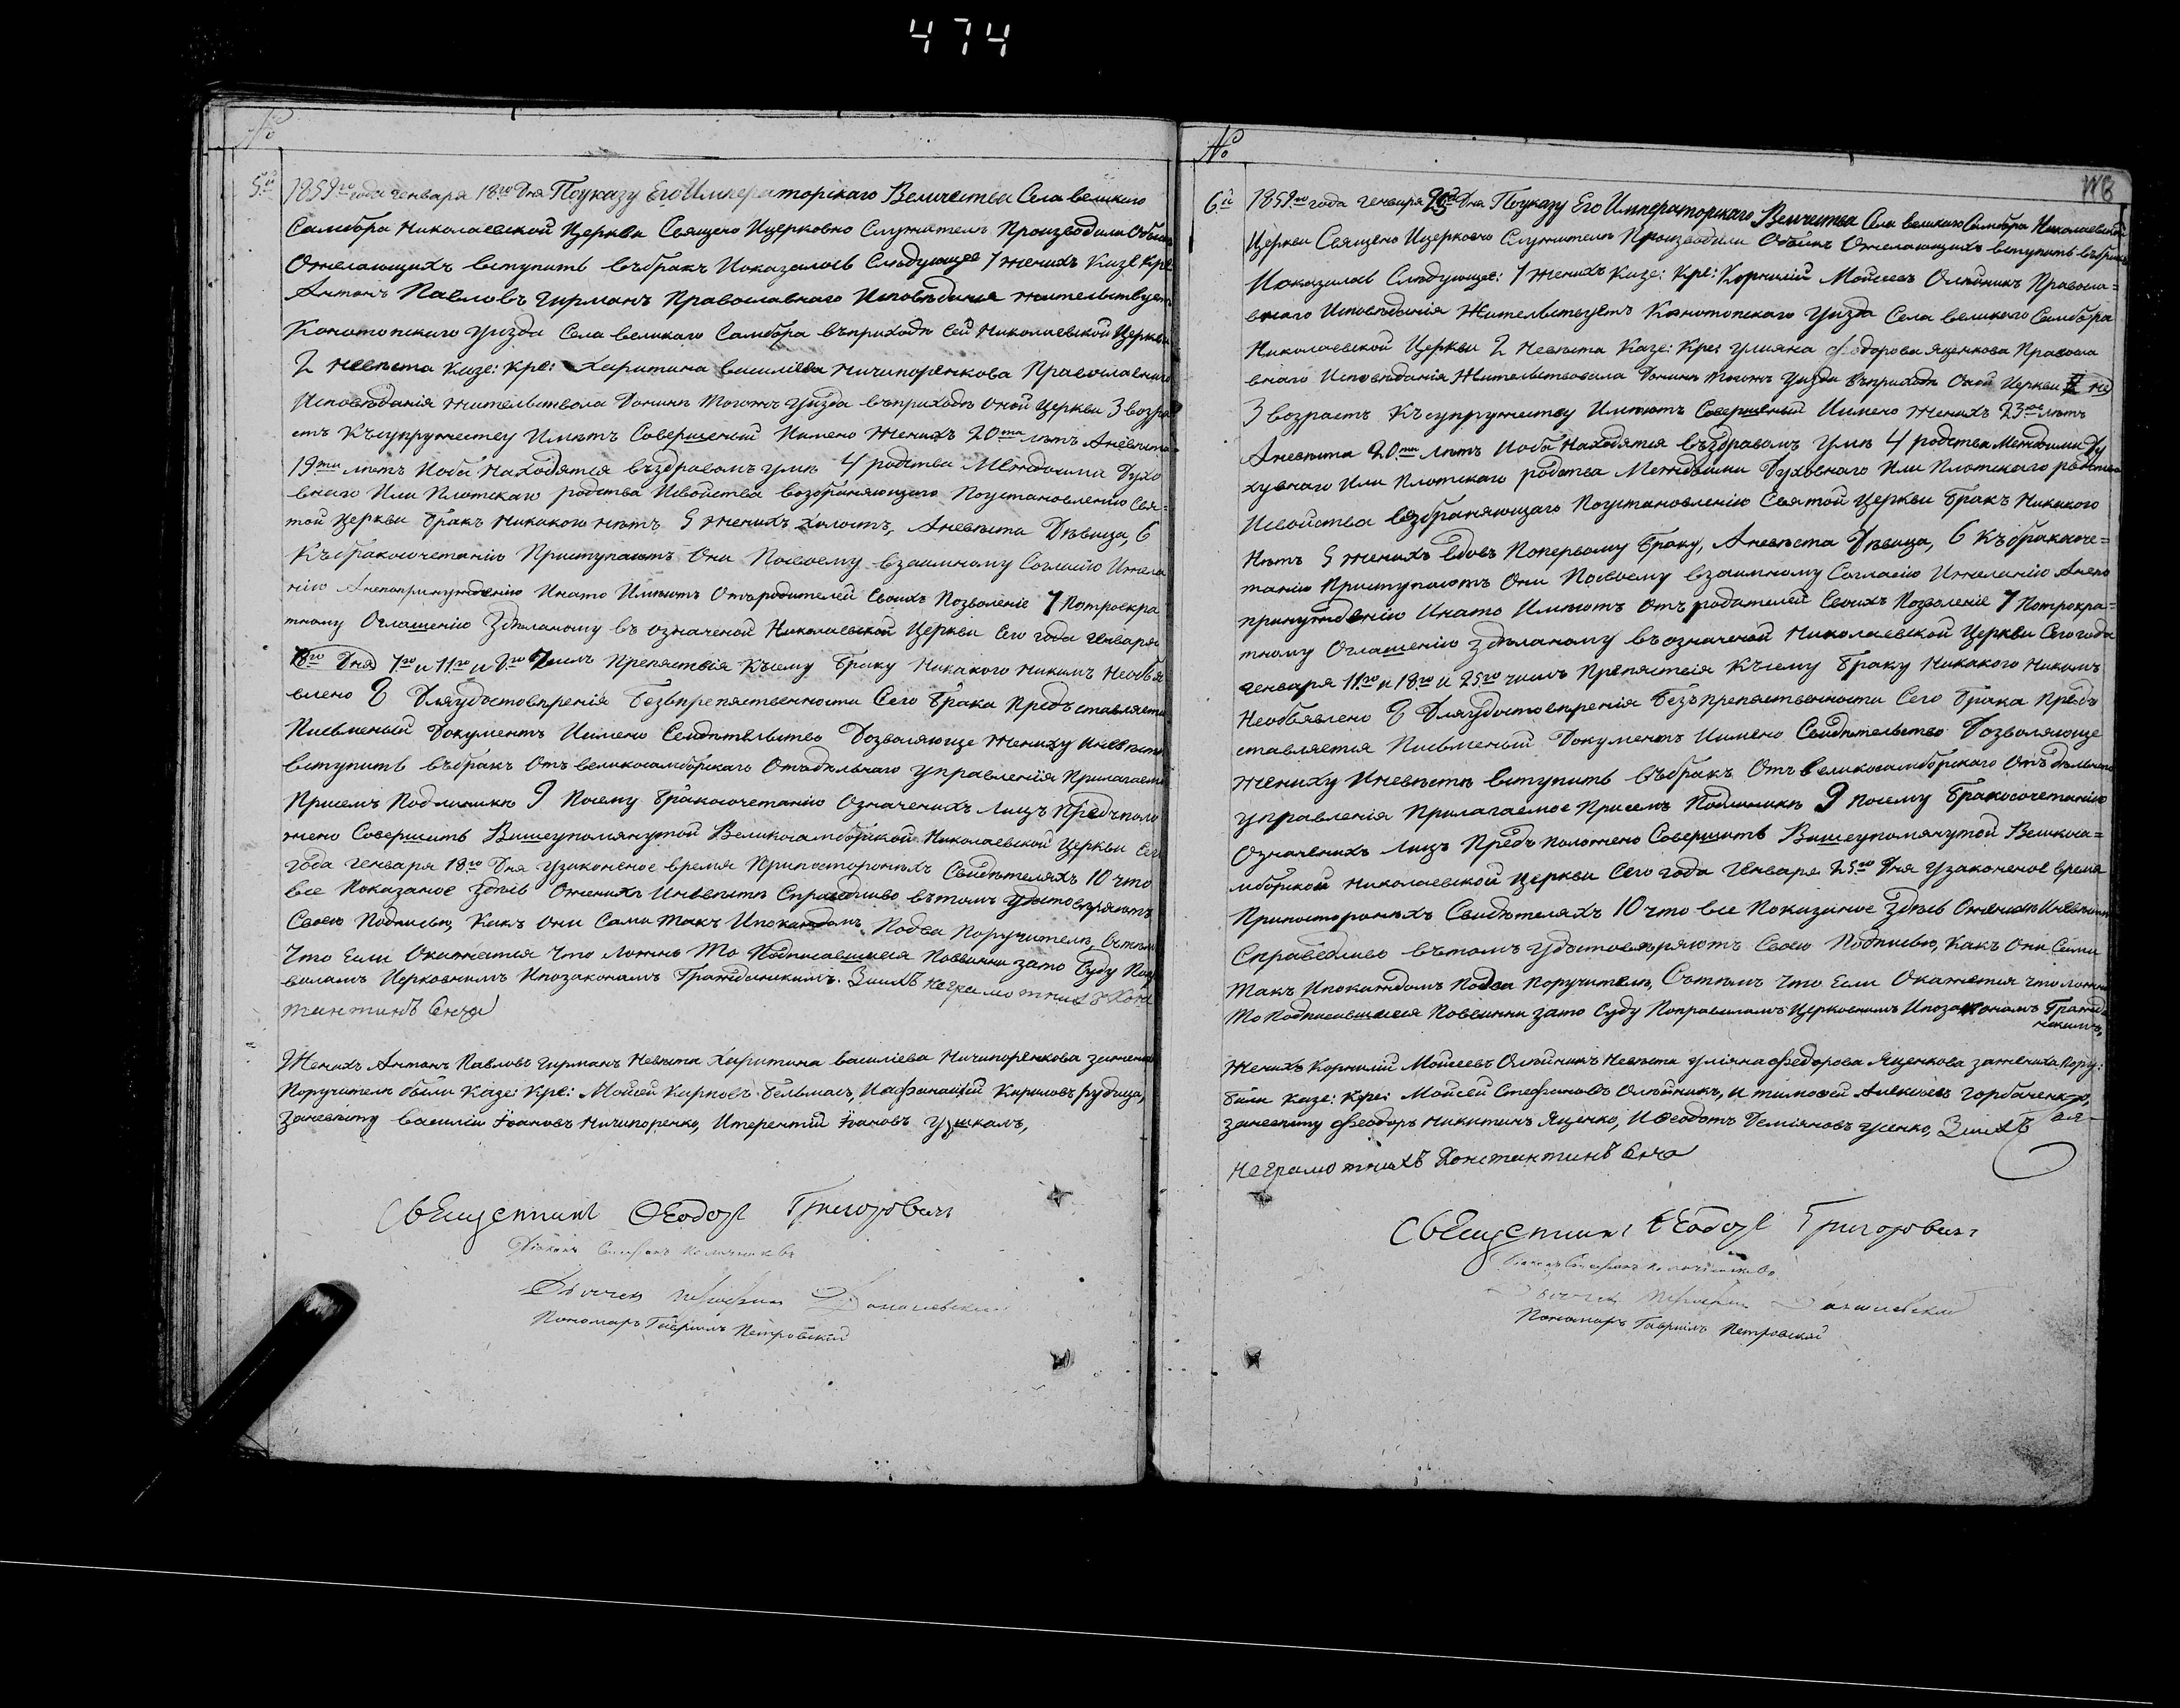 474
№
5й 1859го года генваря 18го Дня Поуказу Его Императорскаго Величества Села великого
Самбора Николаевской Церкви Священо Ицерковно Служителъ Производили Обыск
Ожелающихъ вступить въбракъ Иоказалось Слѣдующее 1 женихъ Казе Кре:
Антонъ Павловъ Гирманъ Православнаго Исповѣданія жительствует
Конотопскаго Уизда Села великаго Самбора въприходѣ Сей Николаевской Церкви
2 Невѣста Казе: Кре: Харитина василіева Ничипоренкова Православнаго
Исповѣданія жительствола Донинѣ Тогожъ Уизда въприходѣ Оной Церкви 3 возра
стъ Ксупружеству Имѣтъ Совершений Иимено женихъ 20ти лѣтъ Аневѣста
19ти лѣтъ Иоба Находятся въздравомъ умѣ 4 родства Междоими Духо
внаго Или Плотскаго родства Исвойства возбраняющаго Поустановленію Свя-
той Церкви бракъ Никакого нѣтъ 5 женихъ Холостъ, Аневѣста Дѣвица, 6
Къбракосочетанію Приступаютъ Они Посвоему взаимному Согласію Ижела
нію Анепопринуждению Инато Имѣютъ Отъродителей Своихъ Позволеніе 7 Потроекра
тному Оглашению Здѣланому въ означеной Николаевской Церкви Сего года генваря
18го Дня 1го и 11го и Препятствія Къему браку Никакого Никимъ Необъя
влено 8 Дляудостовѣренія безъпрепятственности Сего брака Предъставляется
Писменый Документъ Иимено Свидѣтельство Дозволяюще жениху Иневѣсте
вступить въбракъ Отъ великосамборскаго Отъдѣльнаго управленія Прилагаемое
Присемъ Подлиникѣ 9 Посему бракосочетанію Означенихъ лицъ Предъполо
жено Совершить Вишеупомянутой Великосамборской Николаевской Церкви Сего
года генваря 18го Дня узаконеное время Припостороннихъ Свидѣтеляхъ 10 что
все Показаное Здѣсь Оженихѣ Иневѣстѣ Справедливо вътомъ удостовѣряютъ
Своею Подписью, Какъ Они Сами такъ Ипокаждомъ Подва Поручителя, Сътѣм
Что Если Окажется Что ложнъ То Подписавшиеся Повинни зато Суду Попра
виламъ Церковнимъ Ипозаконамъ Гражданскимъ.Зних неграмотних Конс
тантинъ Енча
Женихъ Антонъ Павловъ Гирманъ Невѣста Харитина василіева Ничипоренкова зажениха
Поручители били Казе: Кре: Мойсей Карповъ Бельмасъ, Иафанасій Кириловъ рудица,
Заневѣсту василій Іоановъ Ничипоренко, Итерентій Іоановъ Ушкалъ,
Священникъ Феодоръ Григоровичъ
Діяконъ Стефанъ
Дьячек
Пономаръ Гавріилъ Петровскій
№
6й 1859го года генваря 25го Дня Поуказу Его Императорскаго Величества Села великаго Самбора Николаевской
Церкви Священо Ицерковно Служителѣ Производили Обискъ Ожелающихъ вступить въбракъ
Иоказалось Слѣдующее: 1 женихъ Казе: Кре: Корнилій Мойсеевъ Олѣйникъ Правосла-
внаго Исповѣданія Жительствуетъ Конотопскаго Уизда Села великого Самбора
Николаевской Церкви 2 Невѣста Казе: Кре: улияна Федорова Яценкова Правосла
внаго Исповѣданія Жительствовала Донинѣ Тогожъ Уизда въприходѣ Оной Церкви
3 возрастъ Ксупружеству Имѣютъ Совершеный Иимено женихъ 23ое лѣтъ
Аневѣста 20ти лѣтъ Иоба Находятся въздравомъ Умѣ 4 родства Междоими Ду
ховнаго Или Плотскаго родства Междоими Духовнаго Или Плотскаго родства
Исвойства возбраняющаго Поустановленію Святой Церкви бракъ Никакого
Нѣтъ 5 женихъ вдовъ Попервому браку, Аневѣста Дѣвица, 6 Къбракосоче-
танію Приступаютъ Они Посвоему взаимному Согласію Ижеланію Анепо
принужденію Инато Имѣютъ Отъ родителей Своихъ Позволеніе 7 Потрокра-
тному Оглашенію Здѣланому въозначеной Николаевской Церкви Сего года
генваря 11го и 18го и 25го чишлъ Препятствія Къему браку Никакого Никимъ
Необъявлено 8 Дляудостовѣренія безъпрепятственности Сего брака Предъ
ставляется Писменый Документъ Иимено Свидѣтельство Дозволяюще
жениху Иневѣстѣ вступить въбракъ Отъ великосамборскаго Отъдѣльнаго
управленія Прилагаемое Присемъ Подлиникѣ 9 Посему бракосочетанію
Означенихъ лицъ Предъположено Совершить Вишеупомянутой Великоса-
мборской Николаевской Церкви Сего года Генваря 25го Дня Узаконеное время
Припосторонихъ Свидѣтеляхъ 10 что все Показаное Здѣсь Оженихѣ Иневѣстѣ
Справедливо вътомъ Удостовѣряютъ Своею Подписью, Какъ Они Сами
такъ Ипокаждомъ Подва Поручителя, Сътѣмъ Что Если Окажется что ложно
То Подписавшиеся Повинни зато Суду Поправиламъ Церковнимъ Ипозаконамъ Гражда
нскимъ,
Женихъ Корнилій Мойсеевъ Олѣйникъ Невѣста Уліяна Федорова Яценкова зажениха Пору:
били Казе: Кре: Мойсей Стефановъ Олѣйникъ, и тимофей Алексѣевъ Горбаченко,
заневѣсту Феодоръ Никитинъ Яценко, ИФеодотъ Деміяновъ Усенко, Знихъ
Неграмотнихъ Константинъ Енча
Священникъ Феодоръ Григоровичъ
Пономаръ Гавріилъ Петровскій